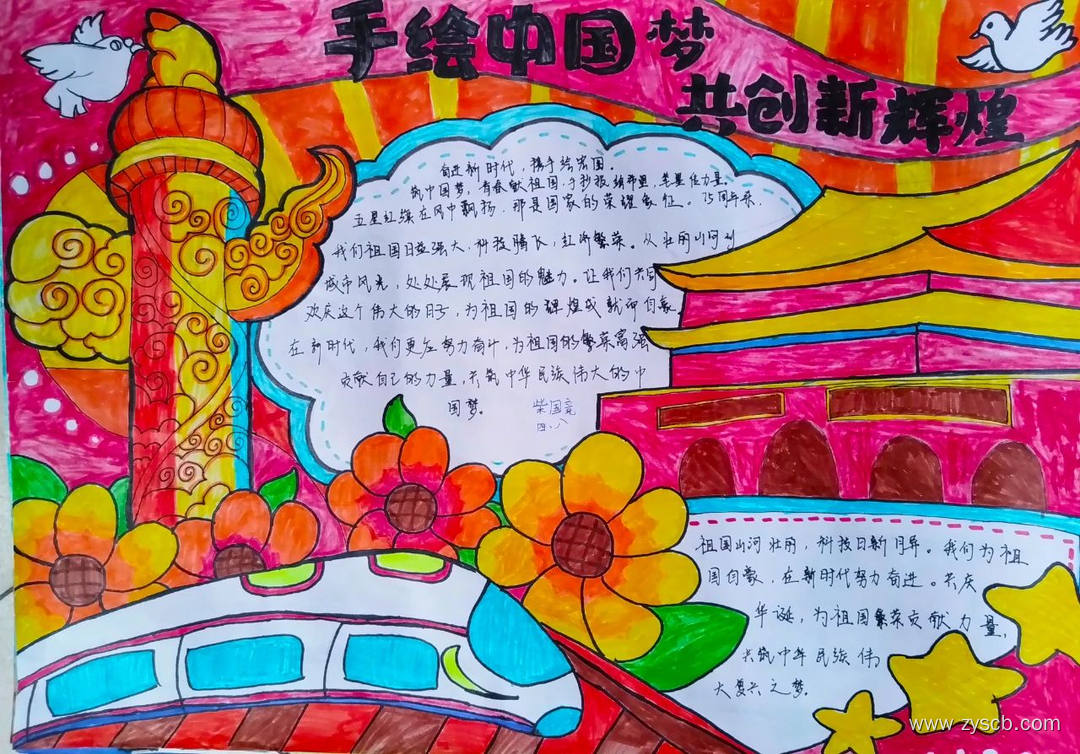 手绘中国梦
共创新辉煌
奋进新时代，携手绘宏图。
筑中国梦，青春献祖国，手抄报绘希望，笔墨传力量。
五星红旗在风中飘扬，那是国家的荣耀象征。75周年来，
我们祖国日益强大，科技腾飞，经济繁荣。从壮丽山河到
城市风光，处处展现祖国的魅力。让我们共同
欢庆这个伟大的日子，为祖国的辉煌成就而自豪。
在新时代，我们更应努力奋斗，为祖国的繁荣富强
贡献自己的力量，共筑中华民族伟大的中
国梦。
四.八
祖国山河壮丽，科技日新月异。我们为祖
国自豪，在新时代努力奋进。共庆
华诞，为祖国繁荣贡献力量，
共筑中华民族伟
大复兴之梦。
www.zyscb.com